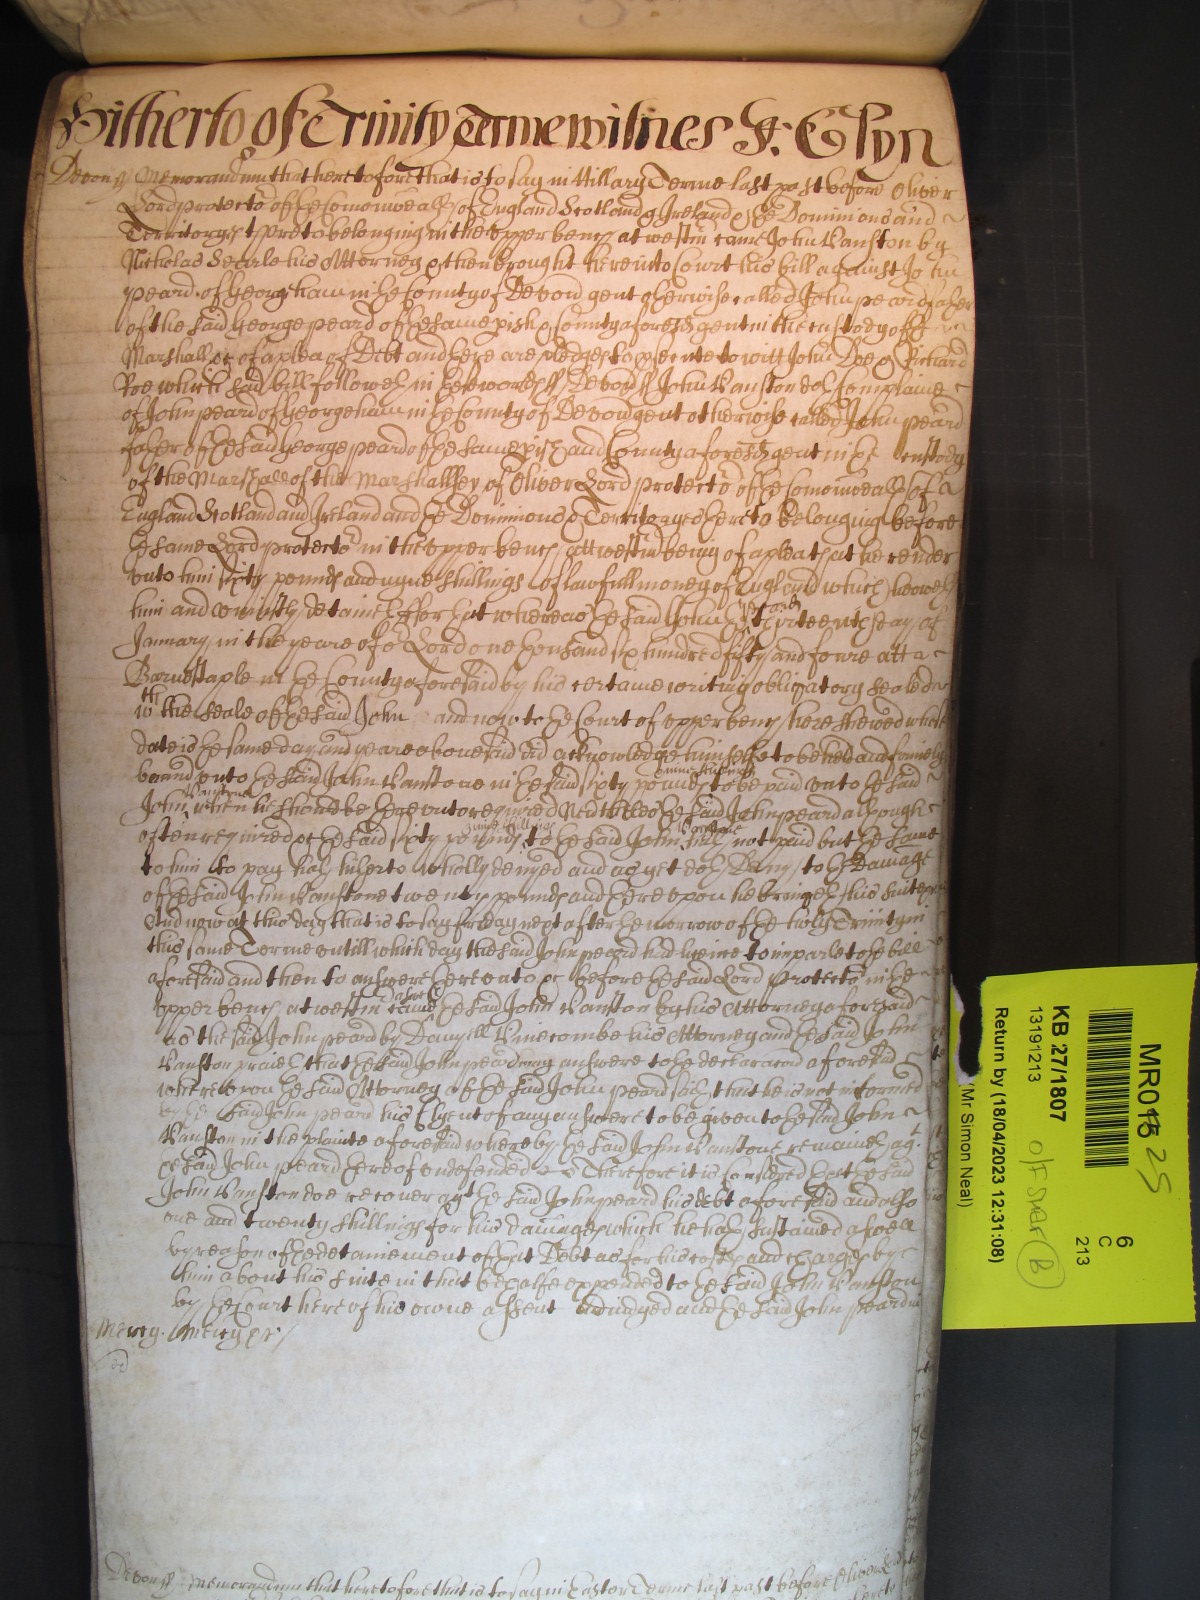 Hitherto of Trinity Terme witnes J: Glyn
Devon ss Memorandum that heretofore that is to say in Hillary Terme last past before Oliver
Lord Protector of the Comonwealth of England Scotland & Ireland & the Dominions and
Territoryes thereto belonging in the upper bench at westm came John Vanston by
Nicholas Searle his Attorney & then brought here into Court his bill against John
Peard of Georgeham in the County of Devon gent otherwise called John Peard father
of the said George Peard of the same pish & County aforesd gent in the custody of the
Marshall &c of a plea of Debt and there are pledges to psecute to witt John Doe & Richard
Roe which said bill followeth in these words ss Devon ss John Vanston doth Complaine
of John Peard of Georgeham in the County of Devon gent otherwise called John Peard
father of the said George Peard of the same pish and County aforesd gent in the custody
of the Marshall of the Marshallsey of Oliver Lord Protector of the Comonwealth of
England Scotland and Ireland and the Dominions & Territoryes thereto belonging before
the same Lord Protector in the upper bench att westm being of a plea that he render
unto him sixty pounds and nyne shillings of lawfull money of England which he oweth
him and uniustly detaineth for that whereas the said John Peard the thirteenth day of
January in the yeare of or Lord one thousand six hundred fifty and fowre att
Barnestaple in the County aforesaid by his certaine writing obligatory sealed
wth the seale of the said John and now to the Court of upper bench here shewed whose
date is the same day and yeare abovesaid did acknowledge himselfe to be held and firmely
bound unto the said John Vanstone in the said sixty pounds & nine shillings to be paid unto the said
John Vanstone when he should be thereunto required Neverthelesse the said John Peard although
often required &c the said sixty pounds & nine shillings to the said John Vanstone hath not paid but the same
to him to pay hath hitherto wholly denyed and as yet doth Deny to the Damage
of the said John Vanstone twenty pounds and thereupon he bringeth his suite
And now at this day that is to say fryday next after the morrow of the holy Trinity in
this same Terme untill which day the said John Peard had licence to imparle to the bill
aforesaid and then to answere thereunto &c before the said Lord Protector in the
upper bench at westm came aswell the said John Vanston by his Attorney aforesaid
as the said John Peard by Danyell Vinecombe his Attorney and the said John
Vanston praieth that the said John Peard may answere to the declaracon aforesaid
whereupon the said Attorney of the said John Peard saith that he is not informed
by the said John Peard his Clyent of any answere to be given to the said John
Vanston in the plainte aforesaid whereby the said John Vanstone remaineth agt
the said John Peard thereof undefended Therefore it is Considered that the said
John Vanston doe recover agt the said John Peard his debt aforesaid and also
one and twenty shillings for his damages which he hath sustained aswell
by reason of the detainement of that Debt as for his costs and charges by
him about his suite in that behalfe expended to the said John Vanston
by the Court here of his owne assent Adiudged and the said John Peard in
Mercy. Mercy &c /
Devon ss Memorandum that heretofore that is to say in Easter Terme last past before Oliver Lord
MR018 25
6
C
213
KB 27/1807
13191213
Off Spec B
Return by (18/04/2023 12:31:08)
(Mr Simon Neal)